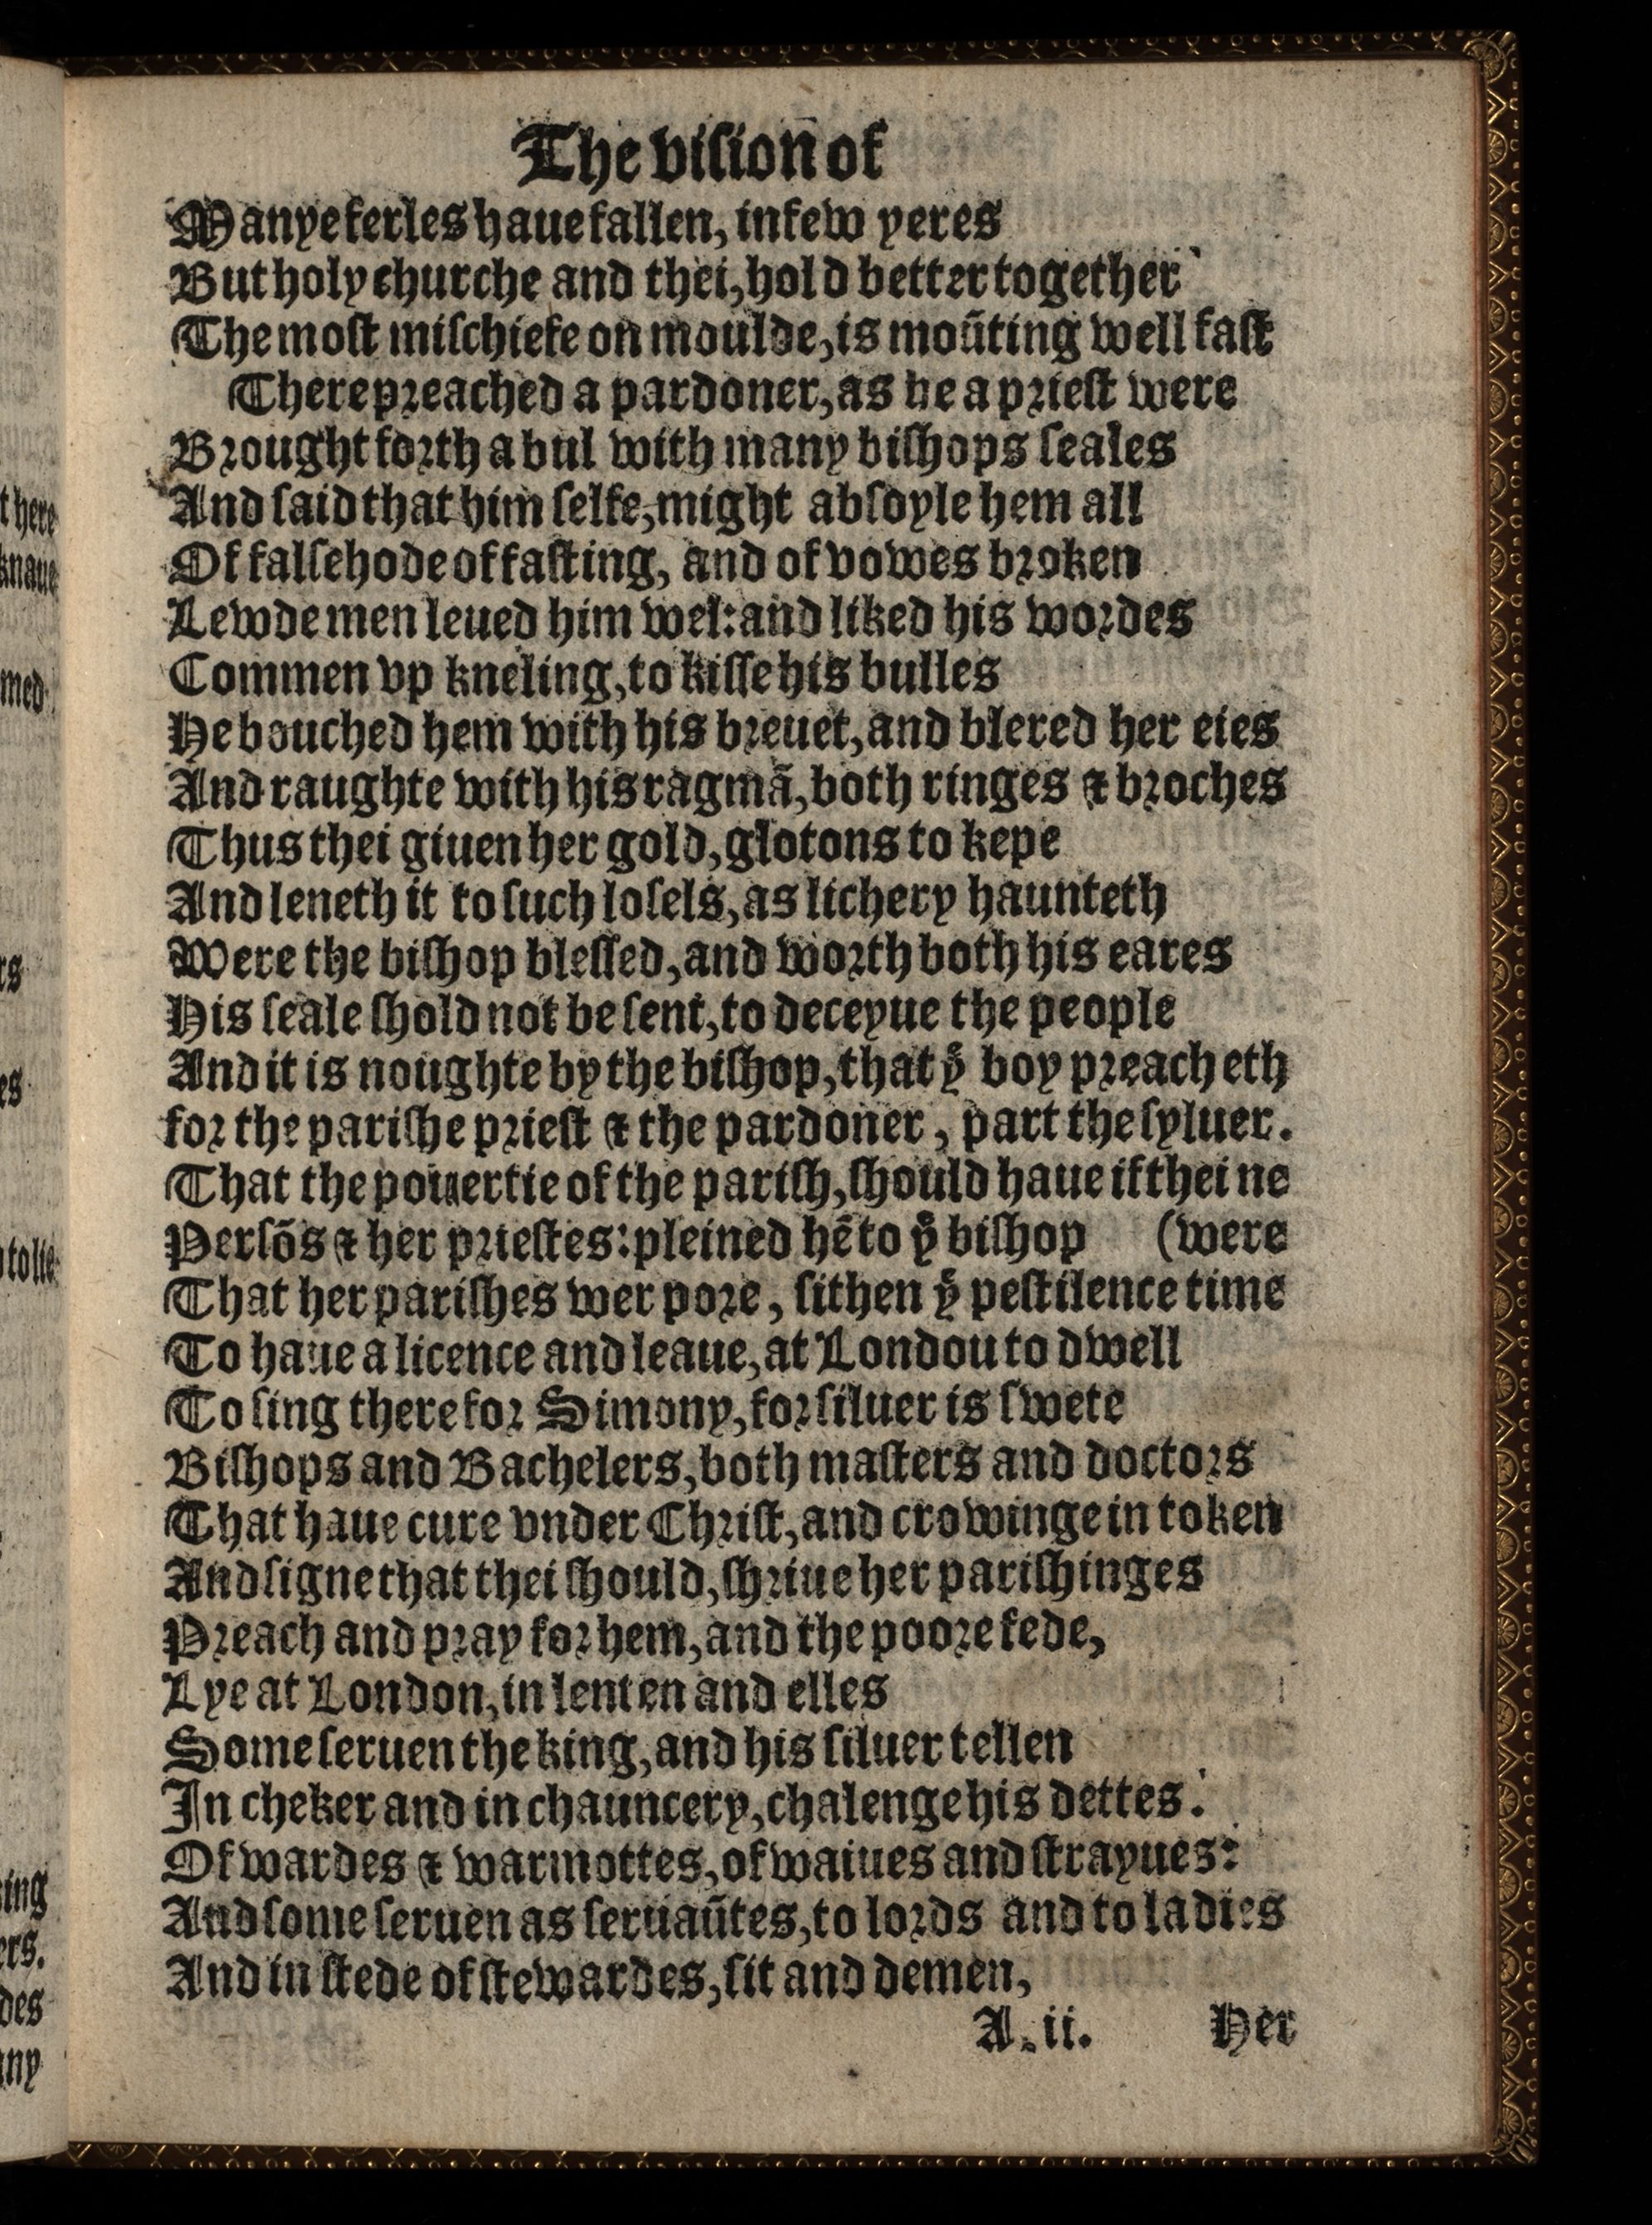 The viſion of
Manye ferles haue fallen, in few yeres
But holy churche and thei, hold better together
The moſt miſchiefe on moulde, is moūting well faſt
There preached a pardoner, as he a prieſt were
Brought forth a bul with many biſhops ſeales
And ſaid that him ſelfe, might abſoyle hem all
Of falſehode of faſting, and of vowes broken
Lewde men leued him wel: and liked his wordes
Commen vp kneling, to kiſſe his bulles
He bouched hem with his breuet, and blered her eies
And raughte with his ragmā, both ringes & broches
Thus thei giuen her gold, glotons to kepe
And leneth it to ſuch loſels, as lichery haunteth
Were the biſhop bleſſed, and worth both his eares
His ſeale ſhold not be ſent, to deceyue the people
And it is noughte by the biſhop, that yͤ boy preacheth
for the pariſhe prieſt & the pardoner, part the ſyluer.
That the pouertie of the pariſh, ſhould haue if thei ne
Perſōs & her prieſtes: pleined hē to yͤ biſhop (were
That her pariſhes wer pore, ſithen yͤ peſtilence time
To haue a licence and leaue, at Londou to dwell
To ſing there for Simony, for ſiluer is ſwete
Biſhops and Bachelers, both maſters and doctors
That haue cure vnder Chriſt, and crowinge in token
And ſigne that thei ſhould, ſhriue her pariſhinges
Preach and pray for hem, and the poore fede,
Lye at London, in lenten and elles
Some ſeruen the king, and his ſiluer tellen
In cheker and in chauncery, chalenge his dettes.
Of wardes & warmottes, of waiues and ſtrayues:
And ſome ſeruen as ſeruaūtes, to lords and to ladies
And in ſtede of ſtewardes, ſit and demen,
A.ii. Her